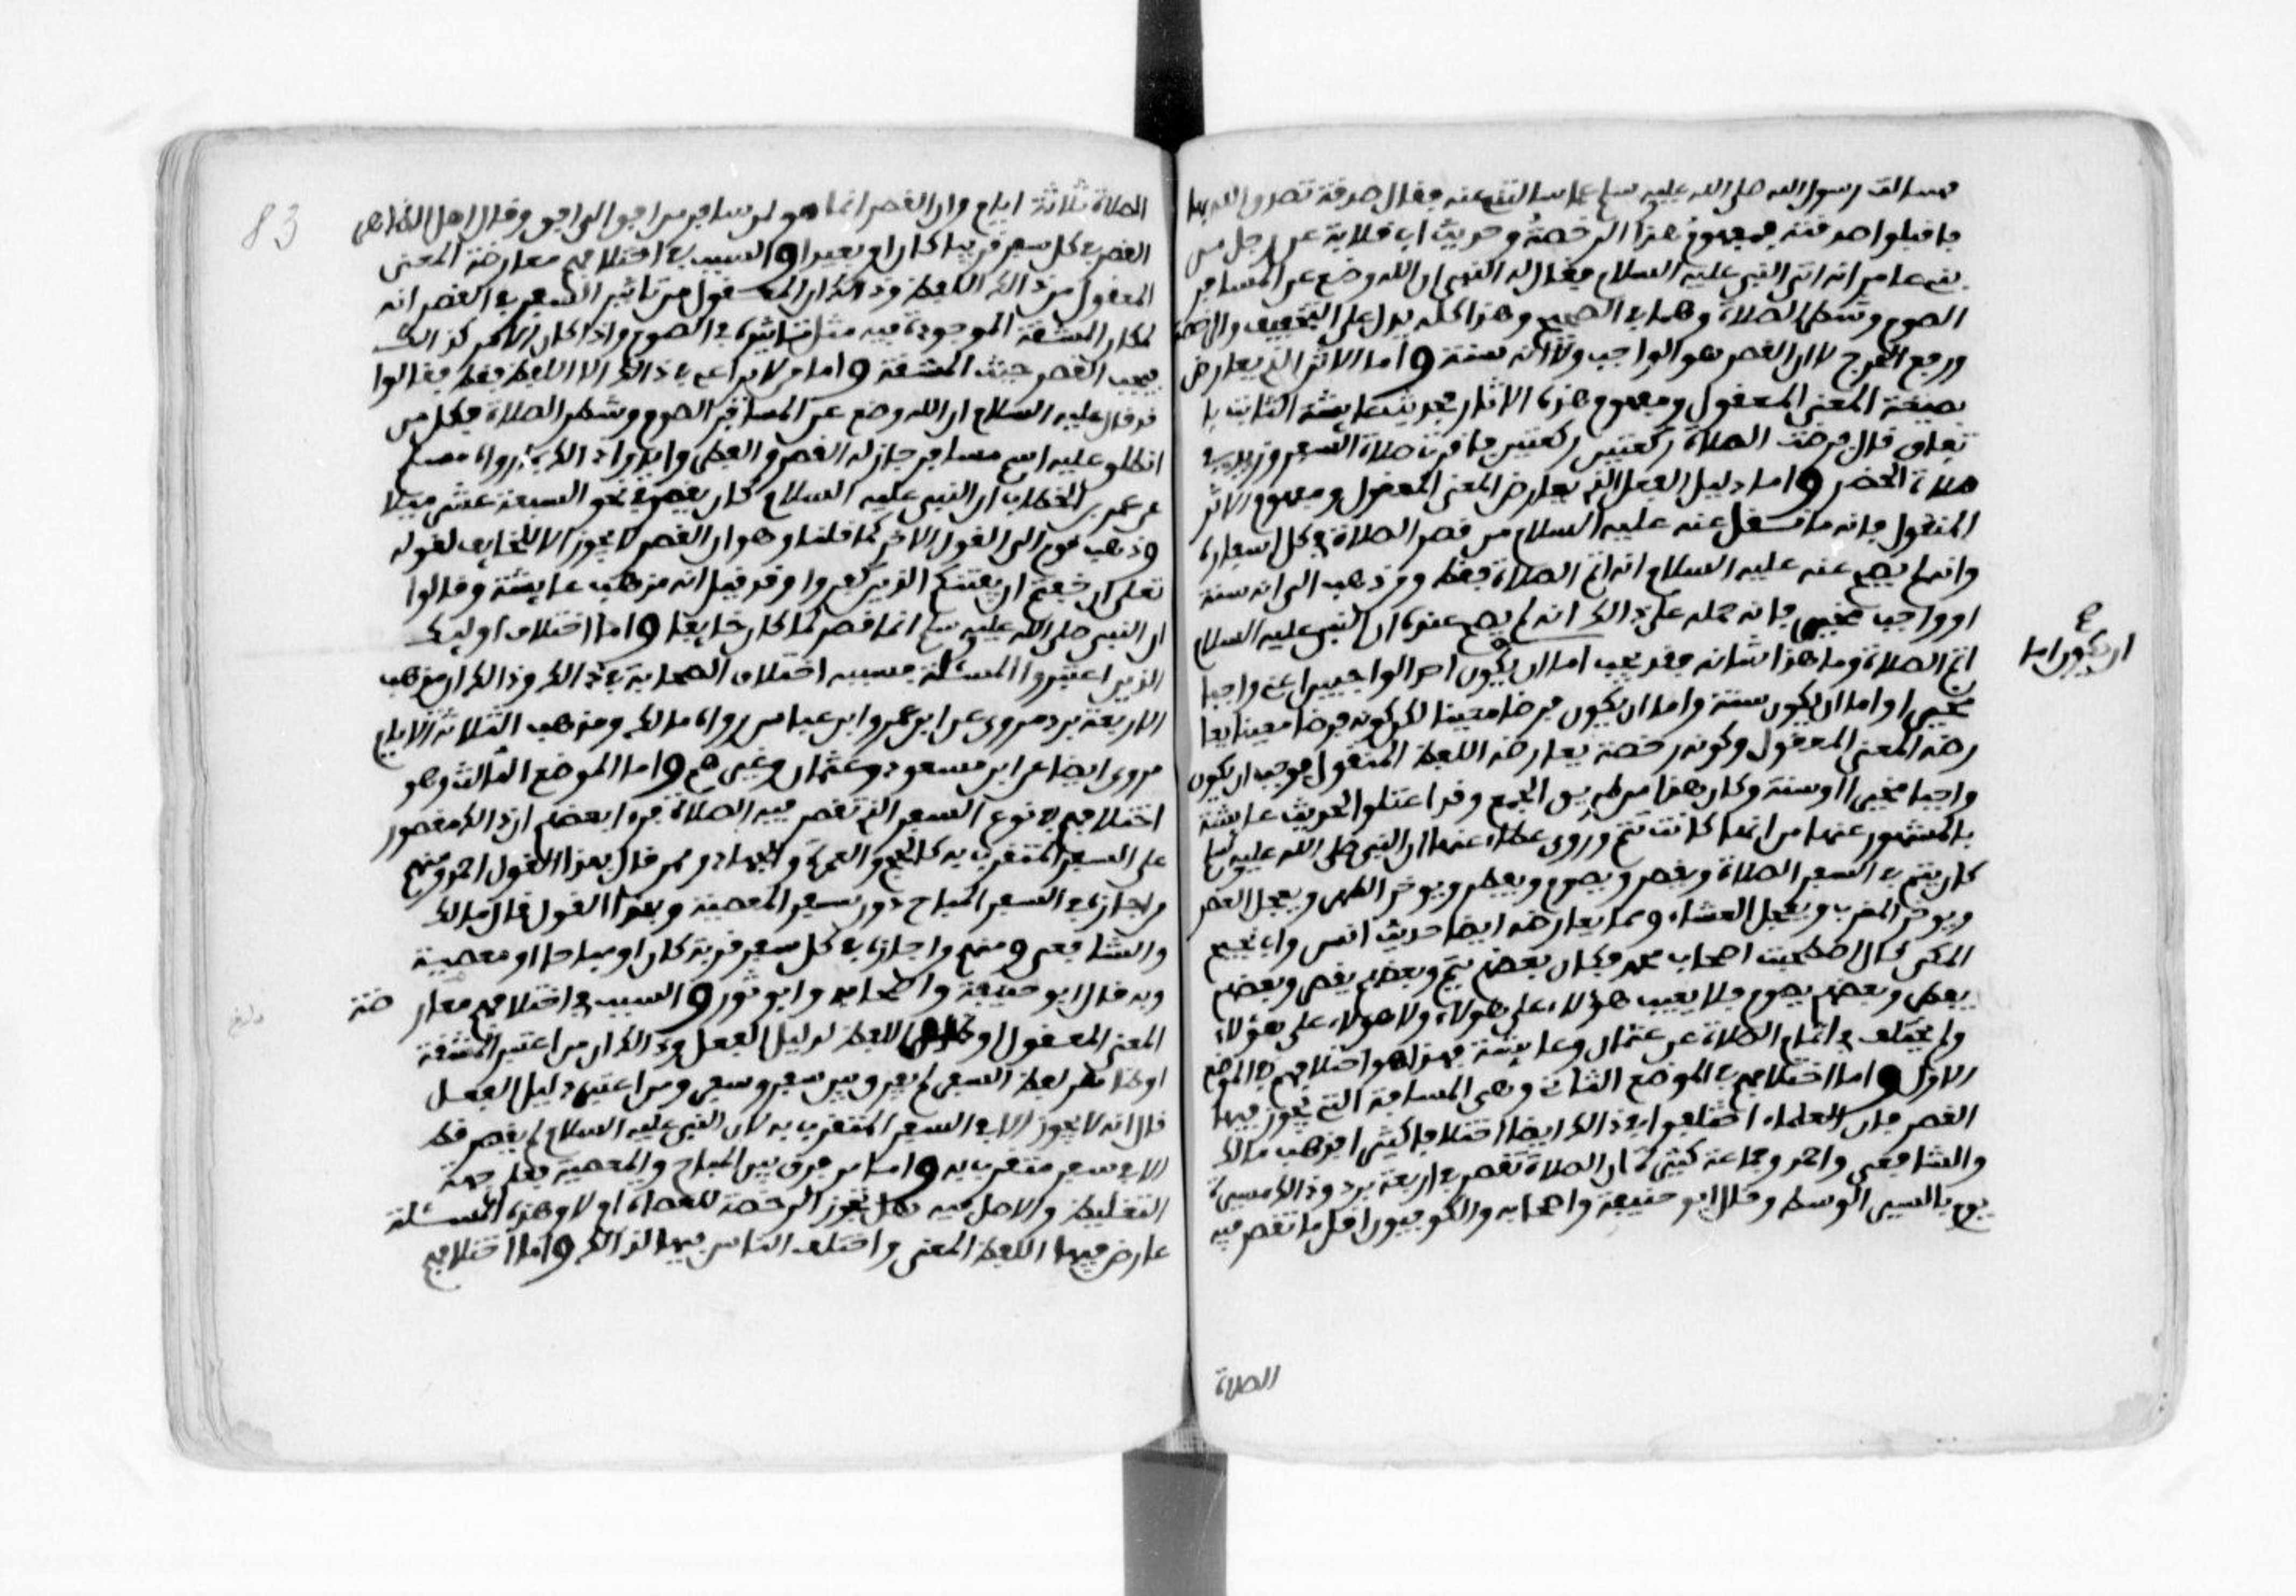 فسالت رسول الله صلى الله عليه وسلم عما سالتني عنه فقال صدقة تصدق الله بها
فاقبلوا صدقته فمفهوم هذا الرخصة وحديث ابي قلابة عن رجل من
بني عامر انه اتى النبي عليه السلام فقال له النبي ان الله وضع عن المسافر
الصوم وشطر الصلاة وهما في الصحيح وهذا كله يدل على التخفيف والرخصة
ورفع الحرج لا ان القصر هو الواجب ولا انه سنة واما الاثر الذي يعارض
بصيغته المعنى المعقول ومفهوم هذه الاثار فحديث عايشة الثابت با
تفاق قال فرضت الصلاة ركعتين ركعتين فاقرت صلاة السفر وزيد في
صلاة الحضر واما دليل الفعل الذي يعارض المعنى المعقول ومفهوم الاثر
المنقول فانه ما نقل عنه عليه السلام من قصر الصلاة في كل اسفاره
وانه لم يصح عنه عليه السلام انه اتم الصلاة فقط ومن ذهب الى انه سنة
او واجب مخير فانه حمله على ذالك انه لم يصح عنده ان النبي عليه السلام
اتم الصلاة وما هذا شانه فقد يجب اما ان يكون احد الواجبين اعني واجبا
ان يكون اما
مخيرا او اما ان يكون سنة واما ان يكون فرضا معينا لكن كونه فرضا معينا يعا
رضه المعنى المعقول وكونه رخصة يعارضه اللفظ المنقول فوجب ان يكون
واجبا مخيرا او سنة وكان هذا من طريق الجمع وقد اعتلوا لحديث عايشة
بالمشهور عنها من انها كانت تتم وروى عطاء عنها ان النبي صلى الله عليه وسلم
كان يتم في السفر الصلاة ويقصر ويصوم ويفطر ويوخر الظهر ويعجل العصر
ويوخر المغرب ويعجل العشاء ومما يعارضه ايضا حديث انس وابي نجيح
المكي قال اصطحبت اصحاب محمد فكان بعضهم يتم وبعضهم يقصر وبعضهم
يفطر وبعضهم يصوم فلا يعيب هؤلاء على هولاء ولا هولاء على هؤلاء
ولم يختلف في اتمام الصلاة عن عثمان وعايشة فهذا هو اختلافهم في الموضع
الاول واما اختلافهم في الموضع الثاني وهي المسافة التي يجوز فيها
القصر فان العلماء اختلفوا في ذالك ايضا اختلافا كثيرا فذهب مالك
والشافعي واحمد وجماعة كثيرة ان الصلاة تقصر في اربعة برد وذالك مسيرة
يوم بالسير الوسط وقال ابو حنيفة واصحابه والكوفيون اقل ما تقصر فيه
الصلاة
83
الصلاة ثلاثة ايام وان القصر انما هو لمن سافر من افق الى افق وقال اهل الظاهر
القصر في كل سفر قريبا كان او بعيدا والسبب في اختلافهم معارضة المعنى
المعقول من ذالك اللفظ وذالك ان المعقول من تاثير السفر في القصر انه
لمكان المشقة الموجودة فيه مثل تاثيره في الصوم واذا كان الامر كذالك
فيجب القصر حيث المشقة واما من لا يراعي في ذالك الا اللفظ فقط فقالوا
قد قال عليه السلام ان الله وضع عن المسافر الصوم وشطر الصلاة فكل من
انطلق عليه اسم مسافر جاز له القصر والفطر وايدوا ذالك بما رواه مسلم
عن عمر بن الخطاب ان النبي عليه السلام كان يقصر في نحو السبعة عشر ميلا
وذهب قوم الى القول الاخر كما قلنا وهو ان القصر لا يجوز الا للخايف لقوله
تعلى ان خفتم ان يفتنكم الذين كفروا وقد قيل انه مذهب عايشة وقالوا
ان النبي صلى الله عليه وسلم انما قصر لما كان خايفا واما اختلاف اوليك
الذين اعتبروا المسئلة فسببه اختلاف الصحابة في ذالك وذالك ان مذهب
الاربعة برد مروي عن ابن عمر وابن عباس رواه مالك ومذهب الثلاثة الايام
مروي ايضا عن ابن مسعود وعثمان وغيرهم واما الموضع الثالث وهو
اختلافهم في نوع السفر الذي تقصر فيه الصلاة فرءا بعضهم ان ذالك مقصور
على السفر المتقرب به كالحج والعمرة والجهاد وممن قال بهذا القول احمد ومنهم
من اجازه في السفر المباح دون سفر المعصية وبهذا القول قال مالك
والشافعي ومنهم من اجازه في كل سفر قربة كان او مباحا او معصية
وبه قال ابو حنيفة واصحابه وابو ثور والسبب في اختلافهم معار ضة
المعنى المعقول او ظاهر اللفظ لدليل الفعل وذالك ان من اعتبر المشقة
او ظاهر لفظ السفر لم يفرق بين سفر وسفر ومن اعتبر دليل الفعل
قال انه لا يجوز الا في السفر المتقرب به لان النبي عليه السلام لم يقصر قط
الا في سفر متقرب به واما من فرق بين المباح والمعصية فعلى جهة
التغليظ والاصل فيه هل تجوز الرخصة للعصاة او لا وهذه المسئلة
عارض فيها اللفظ المعنى واختلف الناس فيها لذالك واما اختلافهم